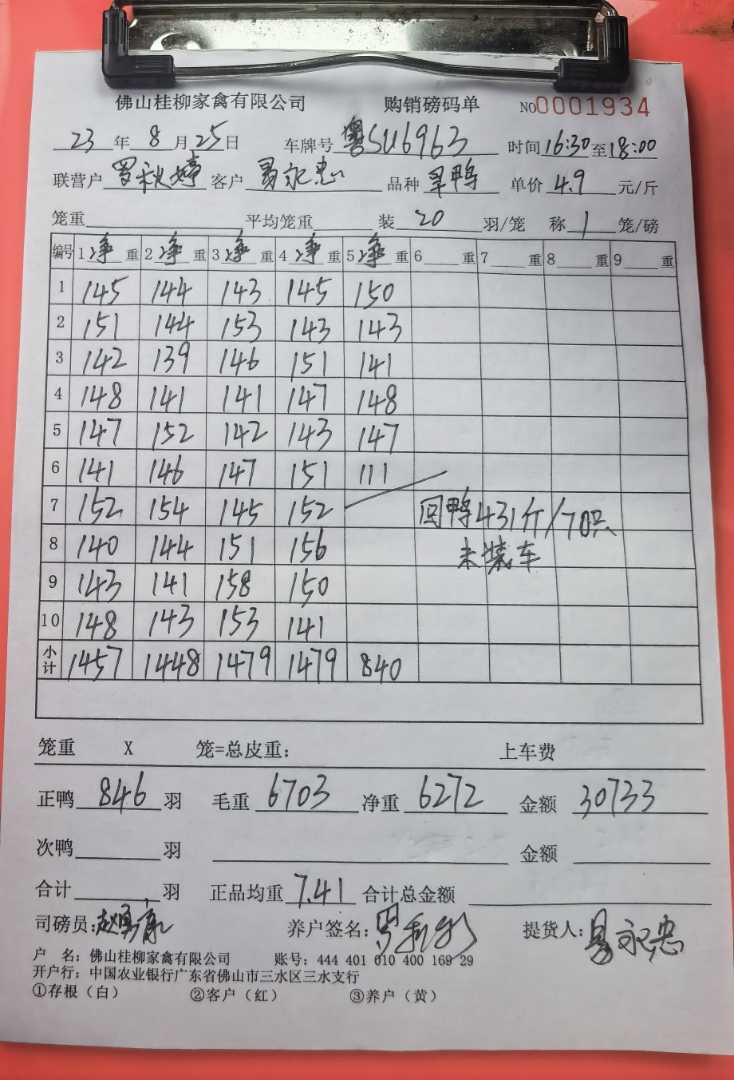 佛山桂柳家禽有限公司 购销磅码单 NO0001934
23年8月25日 车牌号 粤SU6963 时间16:30至18:00
联营户 罗秋婷 客户 易永忠 品种 旱鸭 单价 4.9 元/斤
笼重 平均笼重 装 20 羽/笼 称 1 笼/磅
编号 1净重 2净重 3净重 4净重 5净重 6重 7重 8重 9重
1 145 144 143 145 150
2 151 144 153 143 143
3 142 139 146 151 141
4 148 141 141 147 148
5 147 152 142 143 147
6 141 146 147 151 111
7 152 154 145 152 回鸭431斤/70只
8 140 144 151 156 未装车
9 143 141 158 150
10 148 143 153 141
小计 1457 1448 1479 1479 840
笼重 X 笼=总皮重： 上车费
正鸭 846 羽 毛重 6703 净重 6272 金额 30733
次鸭 羽 金额
合计 羽 正品均重 7.41 合计总金额
司磅员： 养户签名： 提货人：易永忠
户 名：佛山桂柳家禽有限公司 账号：444 401 010 400 169 29
开户行：中国农业银行广东省佛山市三水区三水支行
①存根（白） ②客户（红） ③养户（黄）